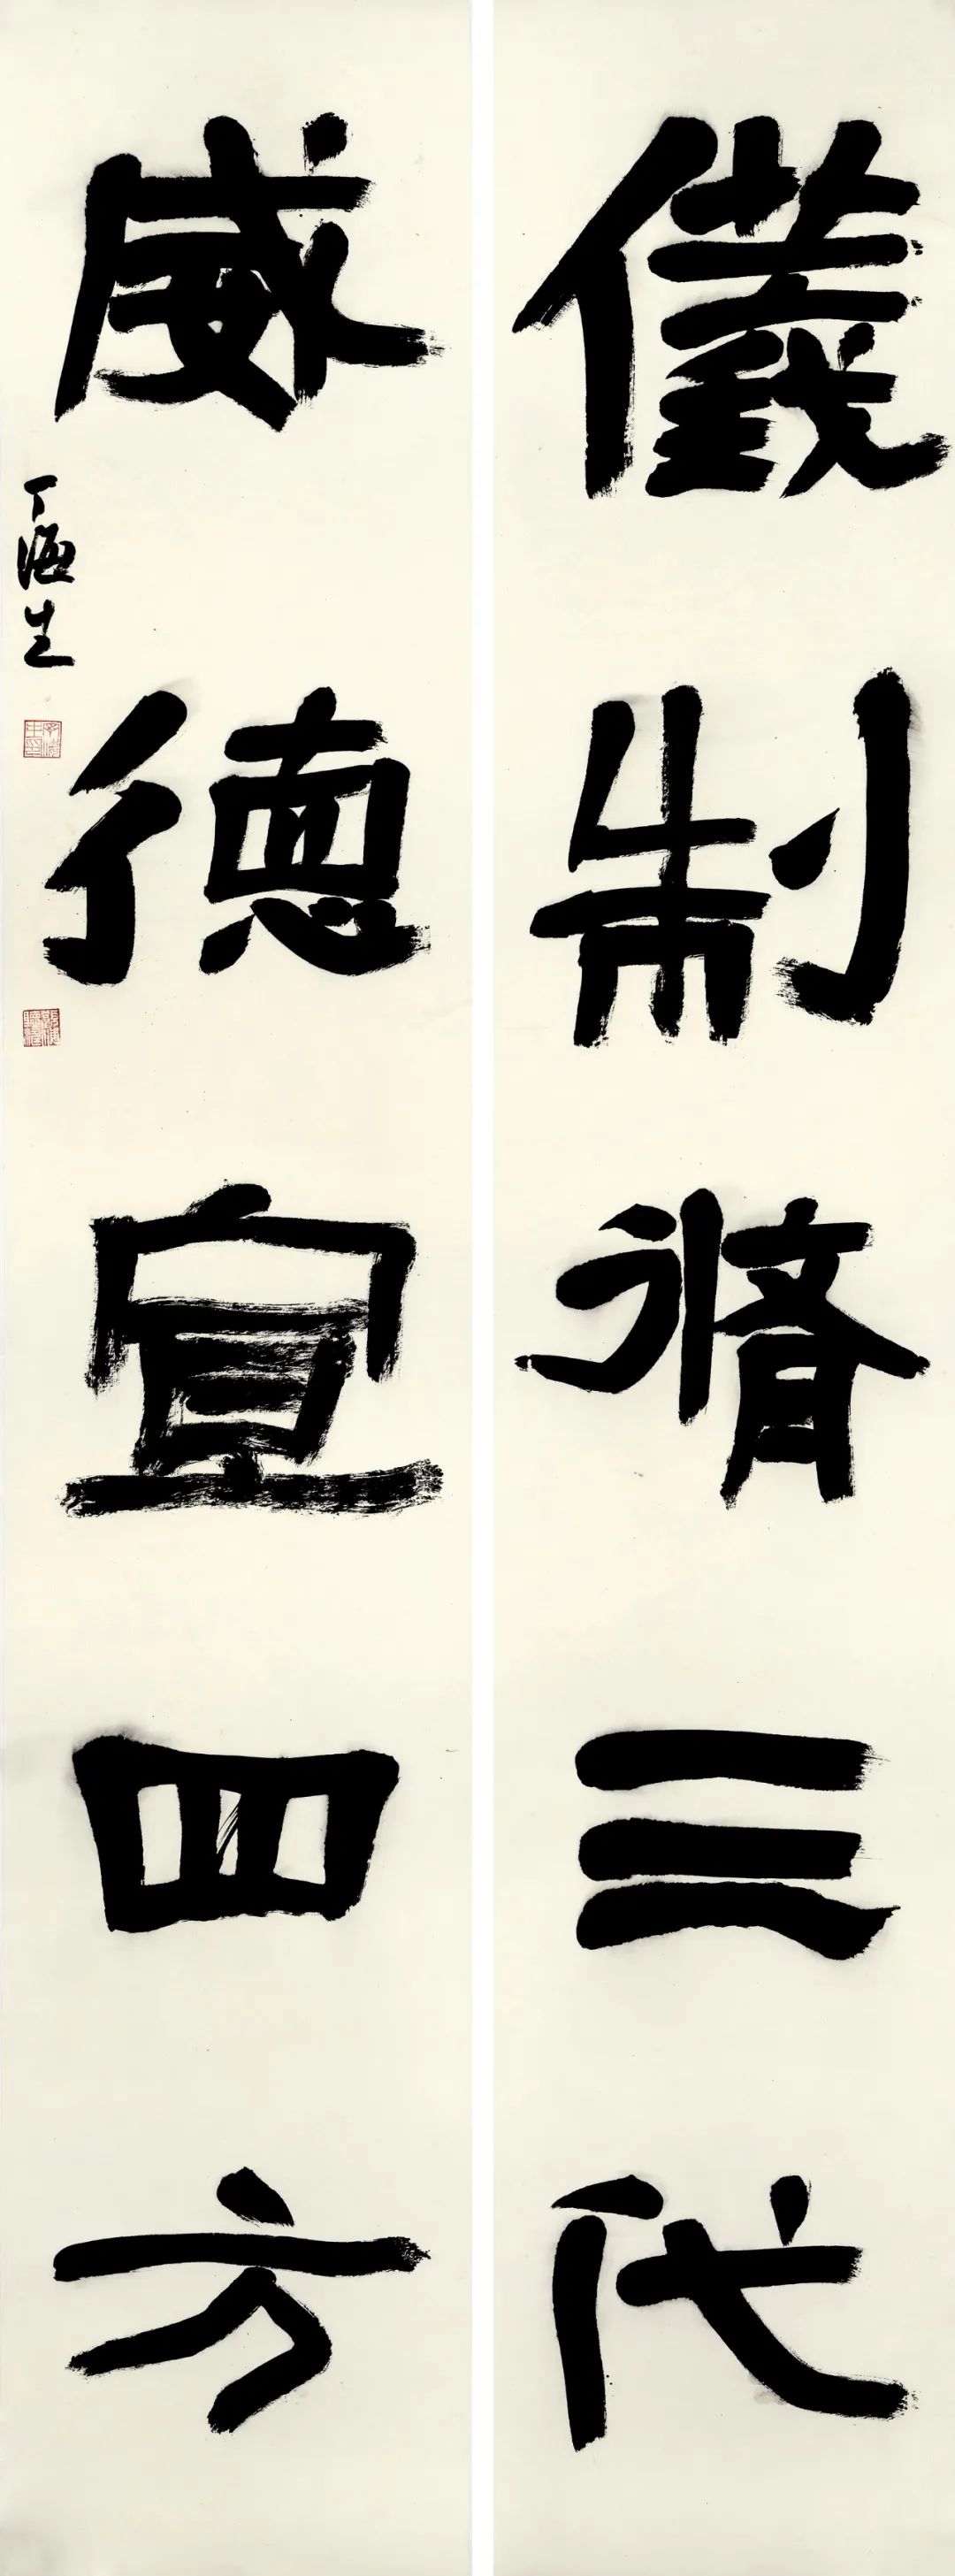 儀制脩三代
威德宣四方
丁海生